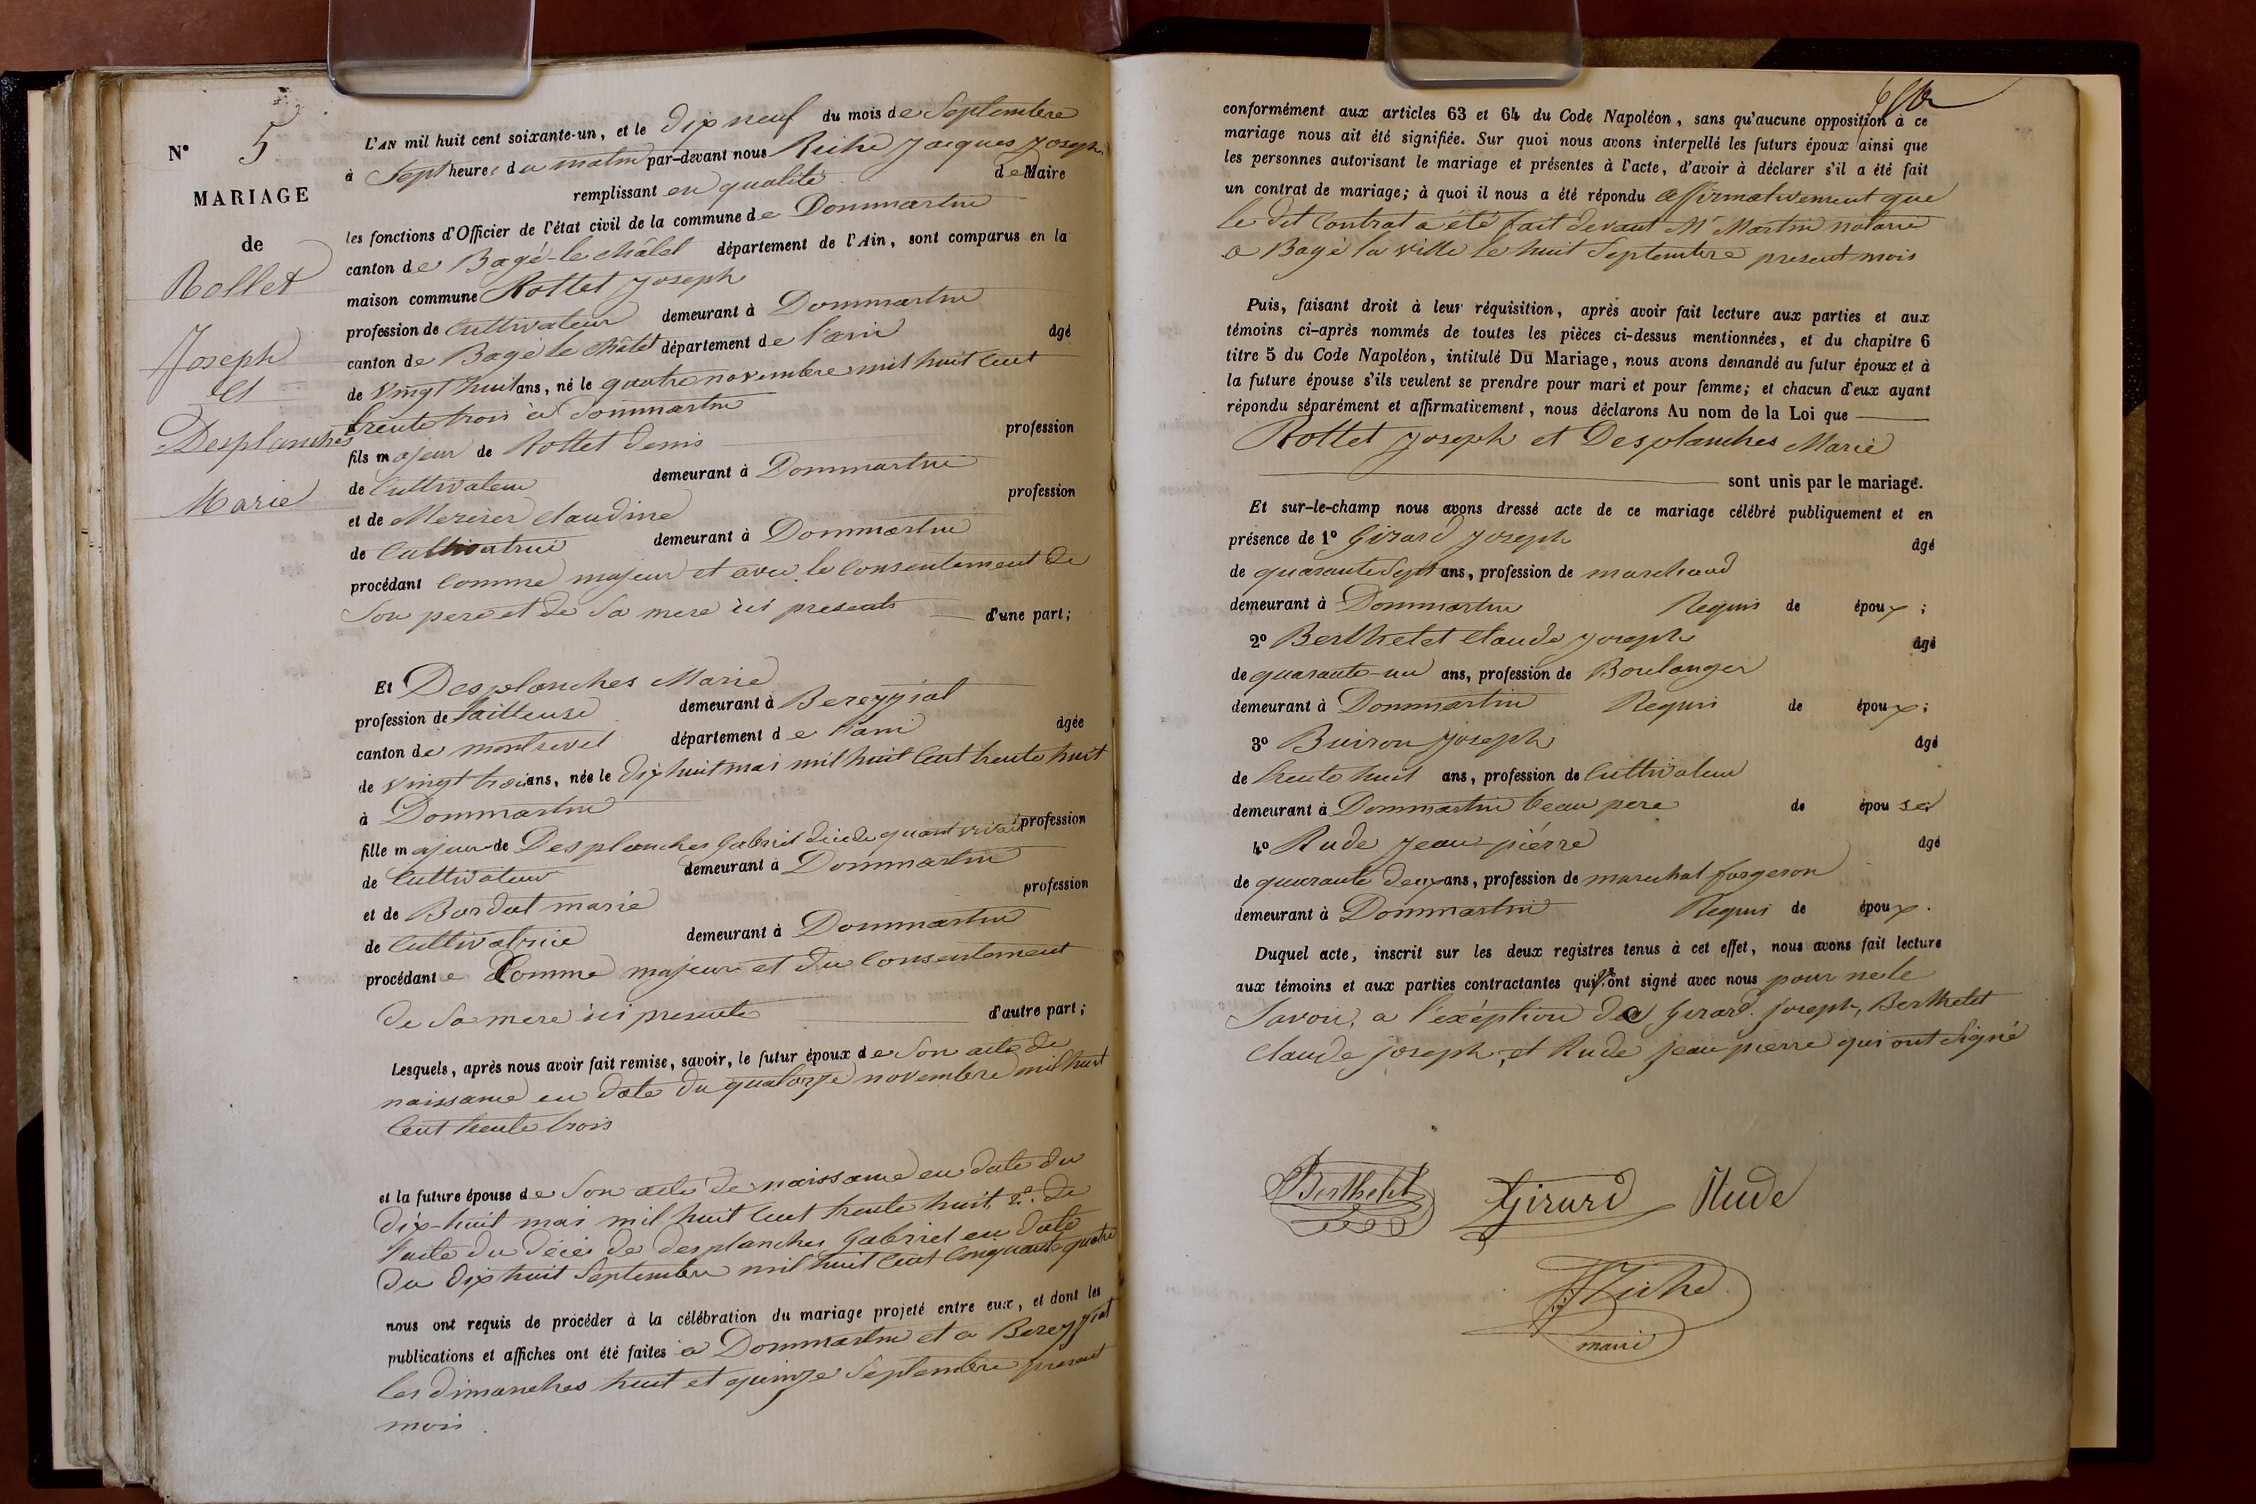 N° 5
MARIAGE
de
Rollet
Joseph
et
Desplanches
Marie
L'AN mil huit cent soixante-un, et le dix neuf du mois de Septembre
à Sept heures du matin par-devant nous Riche Jacques Joseph
remplissant en qualité de Maire
les fonctions d'Officier de l'état civil de la commune de Dommartin
canton de Bagé-le-châtel département de l'Ain, sont comparus en la
maison commune Rollet Joseph
profession de Cultivateur demeurant à Dommartin
canton de Bagé le Châtel département de l'ain âgé
de Vingt huit ans, né le quatre novembre mil huit cent
trente trois à Dommartin
fils majeur de Rollet denis profession
de Cultivateur demeurant à Dommartin
et de Mercier claudine profession
de Cultivatrice demeurant à Dommartin
procédant comme majeur et avec le consentement de
Son pere et de Sa mere ici presents d'une part;
Et Desplanches Marie
profession de tailleuse demeurant à Bereyziat
canton de montrevel département de l'ain âgée
de vingt trois ans, née le dix huit mai mil huit cent trente huit
à Dommartin
fille majeure de Desplanches Gabriel décédé quant vivait profession
de Cultivateur demeurant à Dommartin
et de Bordat marie profession
de Cultivatrice demeurant à Dommartin
procédante Comme majeure et du Consentement
de Sa mere ici presente d'autre part;
Lesquels, après nous avoir fait remise, savoir, le futur époux de Son acte de
naissance en date du quatorze novembre mil huit
Cent trente trois
et la future épouse de Son acte de naissance en date du
dix-huit mai mil huit cent trente huit, 2° de
l'acte du décès de desplanches Gabriel en date
du dix huit Septembre mil huit Cent Cinquante quatre
nous ont requis de procéder à la célébration du mariage projeté entre eux, et dont les
publications et affiches ont été faites à Dommartin et a Bereyziat
les dimanches huit et quinze Septembre present
mois.
conformément aux articles 63 et 64 du Code Napoléon, sans qu'aucune opposition à ce
mariage nous ait été signifiée. Sur quoi nous avons interpellé les futurs époux ainsi que
les personnes autorisant le mariage et présentes à l'acte, d'avoir à déclarer s'il a été fait
un contrat de mariage; à quoi il nous a été répondu affirmativement que
le dit Contrat a été fait devant Mr Martin notaire
a Bagé la ville le huit Septembre present mois
Puis, faisant droit à leur réquisition, après avoir fait lecture aux parties et aux
témoins ci-après nommés de toutes les pièces ci-dessus mentionnées, et du chapitre 6
titre 5 du Code Napoléon, intitulé Du Mariage, nous avons demandé au futur époux et à
la future épouse s'ils veulent se prendre pour mari et pour femme; et chacun d'eux ayant
répondu séparément et affirmativement, nous déclarons Au nom de la Loi que
Rollet Joseph et Desplanches Marie
sont unis par le mariage.
Et sur-le-champ nous avons dressé acte de ce mariage célébré publiquement et en
présence de 1° Girard Joseph âgé
de quarante Sept ans, profession de marchand
demeurant à Dommartin Requis de époux;
2° Berthelet Claude Joseph âgé
de quarante-un ans, profession de Boulanger
demeurant à Dommartin Requis de époux;
3° Buiron Joseph âgé
de trente huit ans, profession de Cultivateur
demeurant à Dommartin beau pere de épouse
4° Rude Jean pierre âgé
de quarante deux ans, profession de marechal forgeron
demeurant à Dommartin Requis de époux.
Duquel acte, inscrit sur les deux registres tenus à cet effet, nous avons fait lecture
aux témoins et aux parties contractantes qui n'ont signé avec nous pour ne le
Savoir, a l'exéption de Girard Joseph, Berthelet
Claude joseph, et Rude jean pierre qui ont Signé
Berthelet Girard Rude
Riche
maire